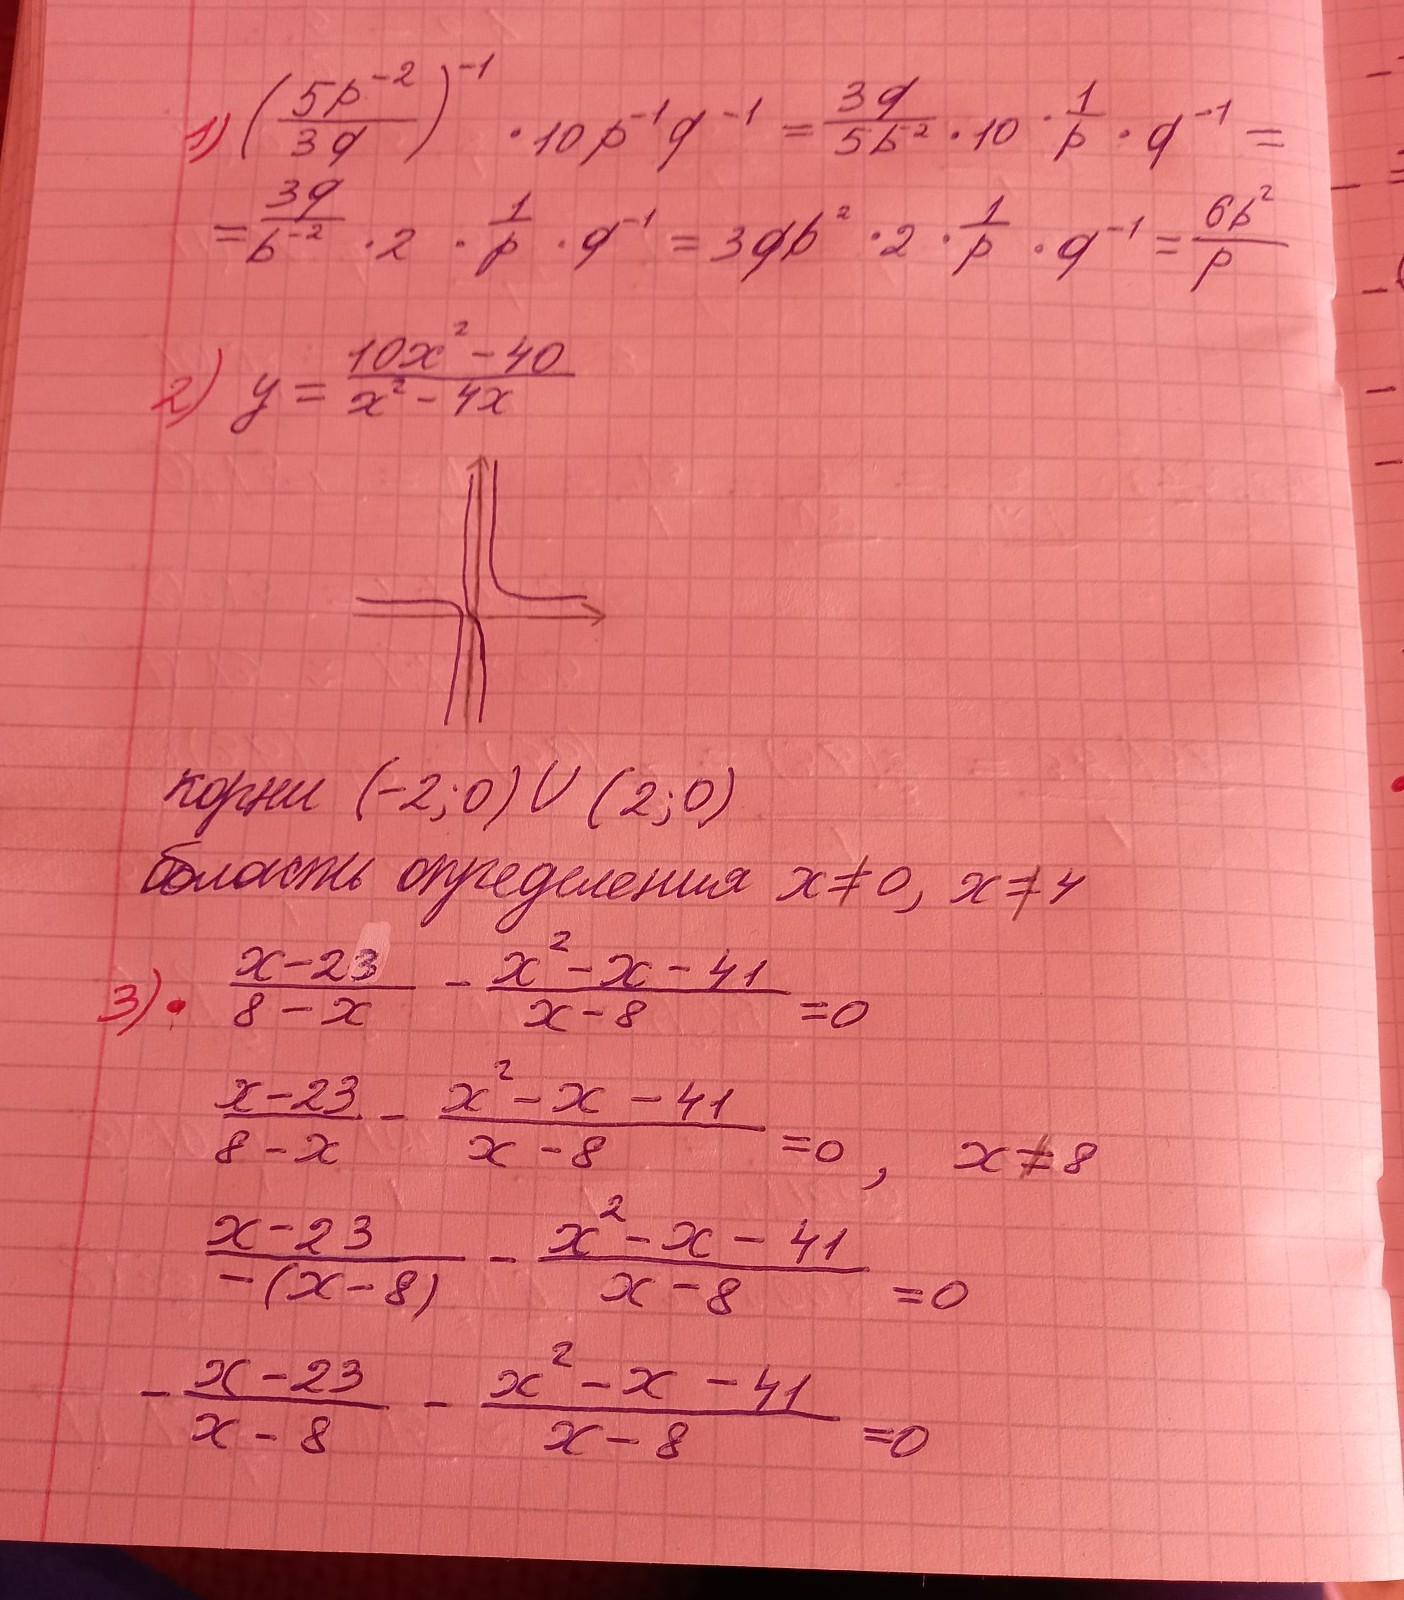 1) (5p⁻²/3q)⁻¹ · 10p⁻¹q⁻¹ = 3q/5b⁻² · 10 · 1/p · q⁻¹ =
= 3q/b⁻² · 2 · 1/p · q⁻¹ = 3qb² · 2 · 1/p · q⁻¹ = 6b²/p
2) y = 10x² - 40/x² - 4x
корни (-2;0) U (2;0)
область определения x≠0, x≠4
3) · x-23/8-x - x²-x-41/x-8 =0
x-23/8-x - x²-x-41/x-8 =0, x≠8
x-23/-(x-8) - x²-x-41/x-8 =0
- x-23/x-8 - x²-x-41/x-8 =0